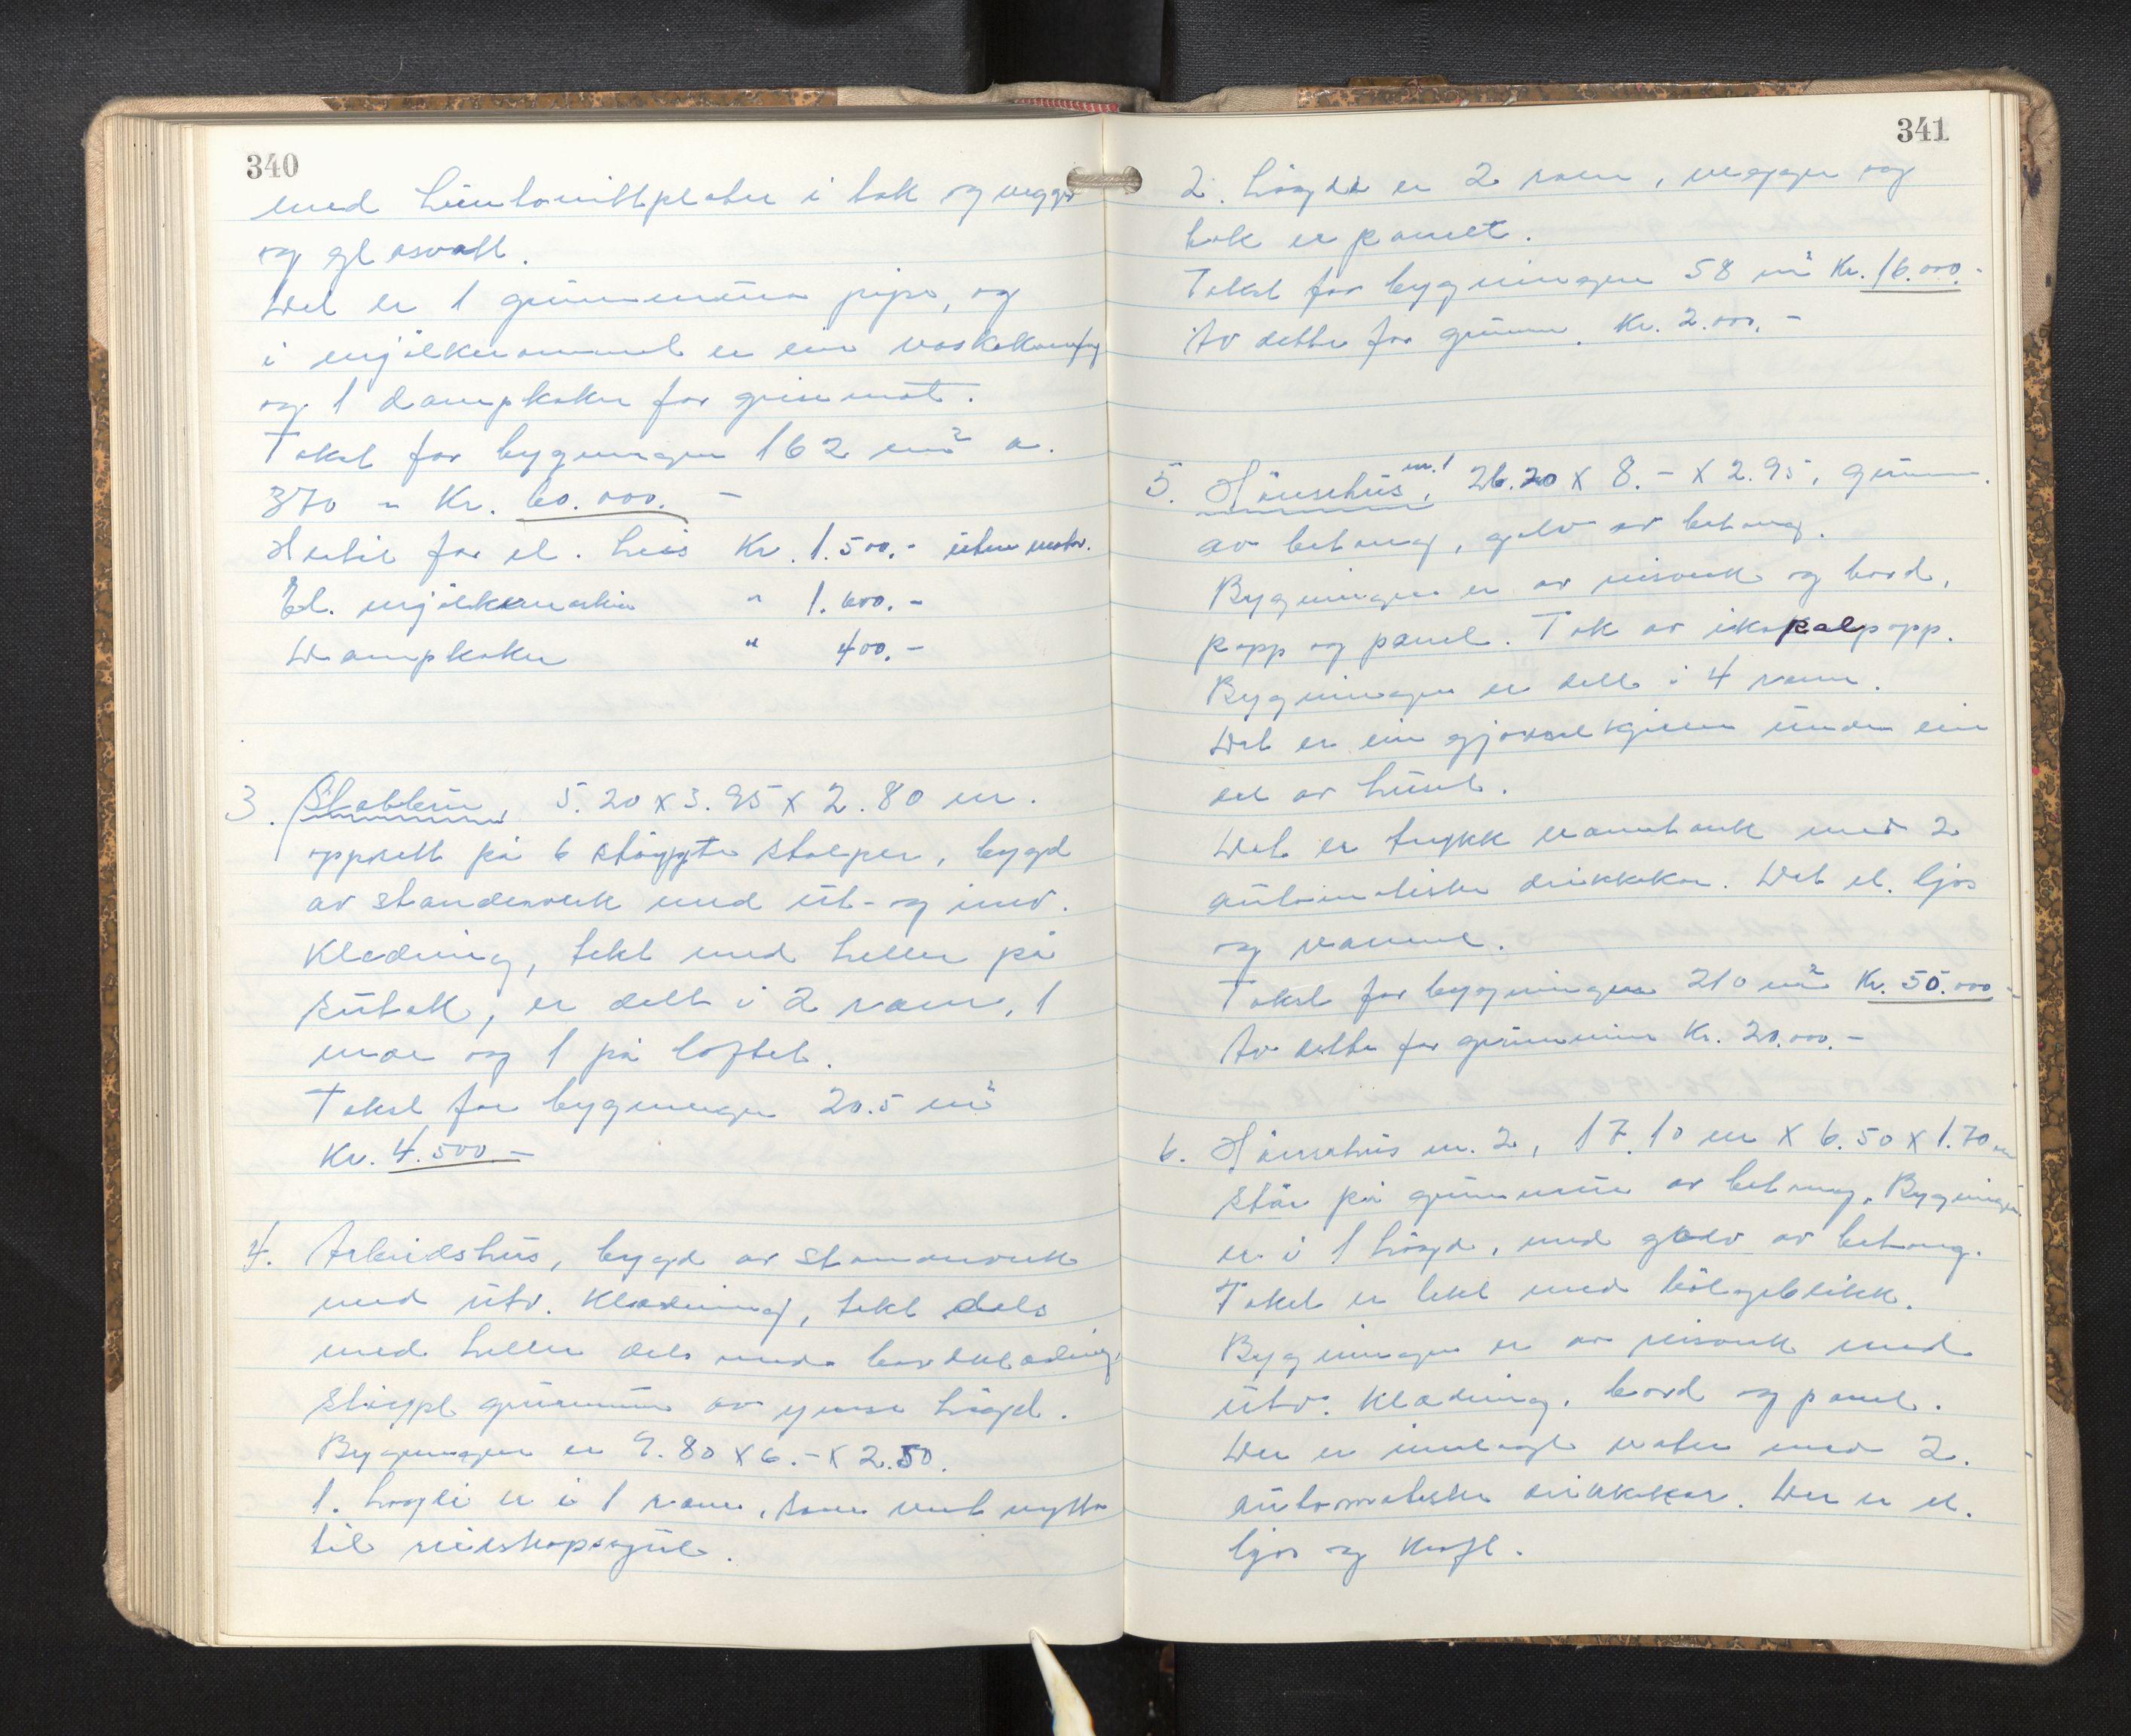 340
med huntonittplater i tak og vegger
og glasvatt.
Det er 1 grunnmura pipe, og
i mjølkerommet er ein vaskekum
og 1 dampkoker for grisemat.
Takst for bygningen 162 m² a.
370 = Kr. 60.000.-
Heis for el. heis Kr. 1.500.- uten motor.
El. mjølkemaskin " 1.600.-
Dampkoker " 400.-
3. Stabbur, 5.20 x 3.95 x 2.80 m.
oppsett på 6 støypte stolper, bygd
av standerverk med ut- og innv.
Kledning, tekt med heller på
sutak, er delt i 2 rom, 1
nede og 1 på loftet.
Takst for bygningen 20.5 m²
Kr. 4.500.-
4. Arbeidshus, bygd av standerverk
med utv. Kledning, tekt dels
med heller dels med bordkledning,
støypt grunnmur av ymse høgd.
Bygningen er 9.80 x 6.- x 2.50.
1. høgdi er i 1 rom, som vert nytta
til reiskapsskjul.
341
2. høgda er 2 rom, vegger og
tak er panelt.
Takst for bygningen 58 m² Kr. 16.000.-
Av dette for grunnm. Kr. 2.000.-
5. Hønsehus nr. 1, 26.20 x 8.- x 2.95, grunnm.
av betong, golv av betong.
Bygningen er av reisverk og bord,
papp og panel. Tak av ikopalpapp.
Bygningen er delt i 4 rom.
Det er ein gjødselkjeller under ein
del av huset.
Det er trykk vanntank med 2
automatiske drikkekar. Det el. ljos
og varme.
Takst for bygningen 210 m² Kr. 50.000.-
Av dette for grunnmur Kr. 20.000.-
6. Hønsehus nr. 2, 17.10 m x 6.50 x 1.70 m
står på grunnmur av betong. Bygningen
er i 1 høgd, med golv av betong.
Taket er tekt med bølgeblikk.
Bygningen er av reisverk med
utv. Kledning, bord og panel.
Der er innlagt vatn med 2.
automatiske drikkekar. Der er el.
ljos og kraft.